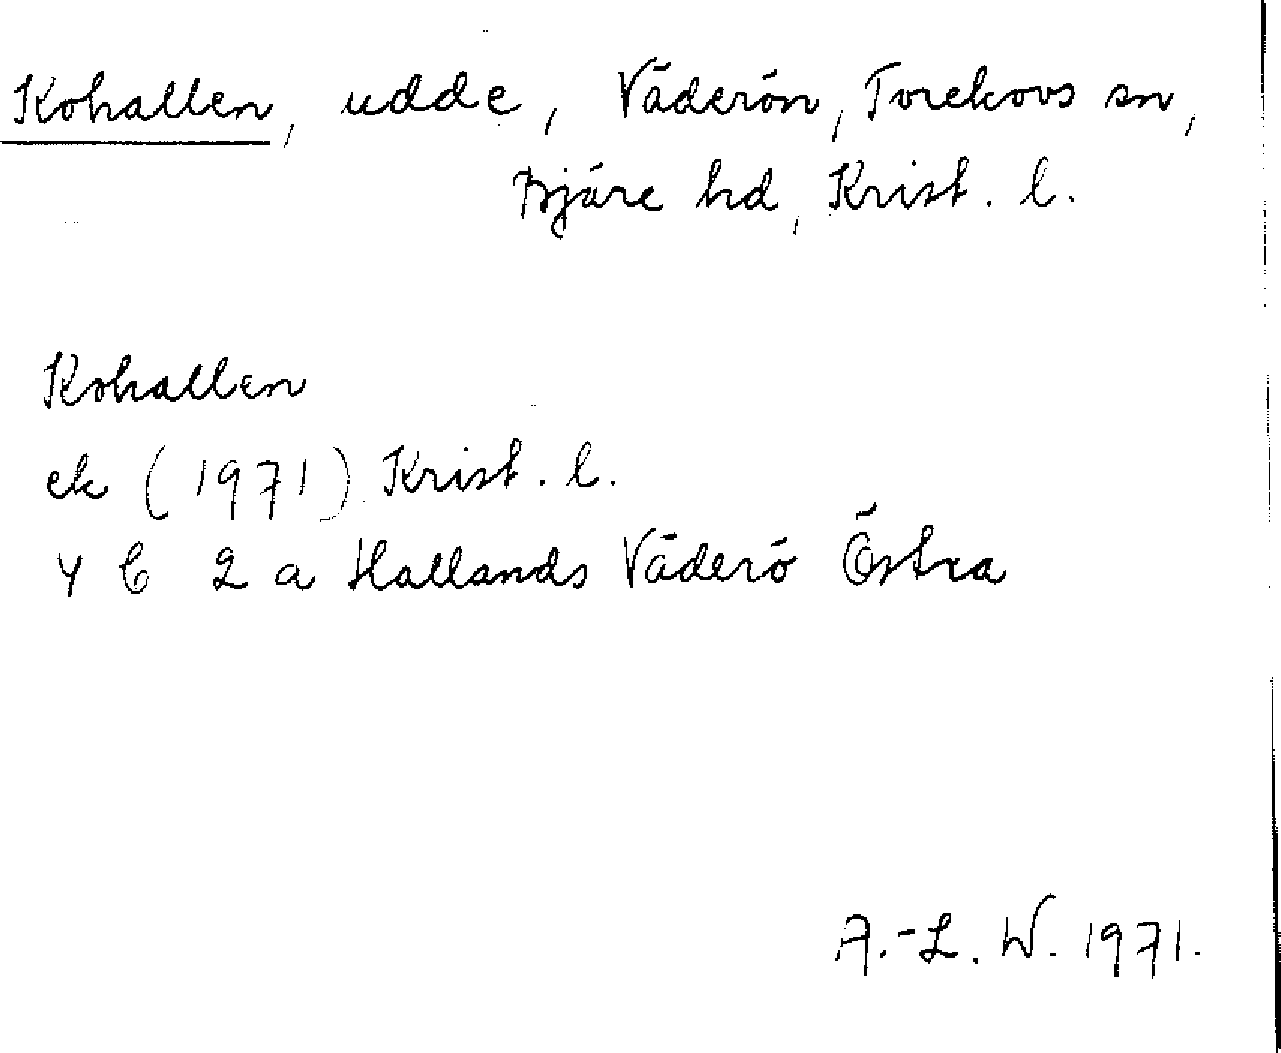 Kohallen, udde, Väderön, Torekovs sn,
Bjäre hd, Krist. l.
Kohallen
ek (1971) Krist. l.
4 C 2 a Hallands Väderö Östra
A.-L. W. 1971.